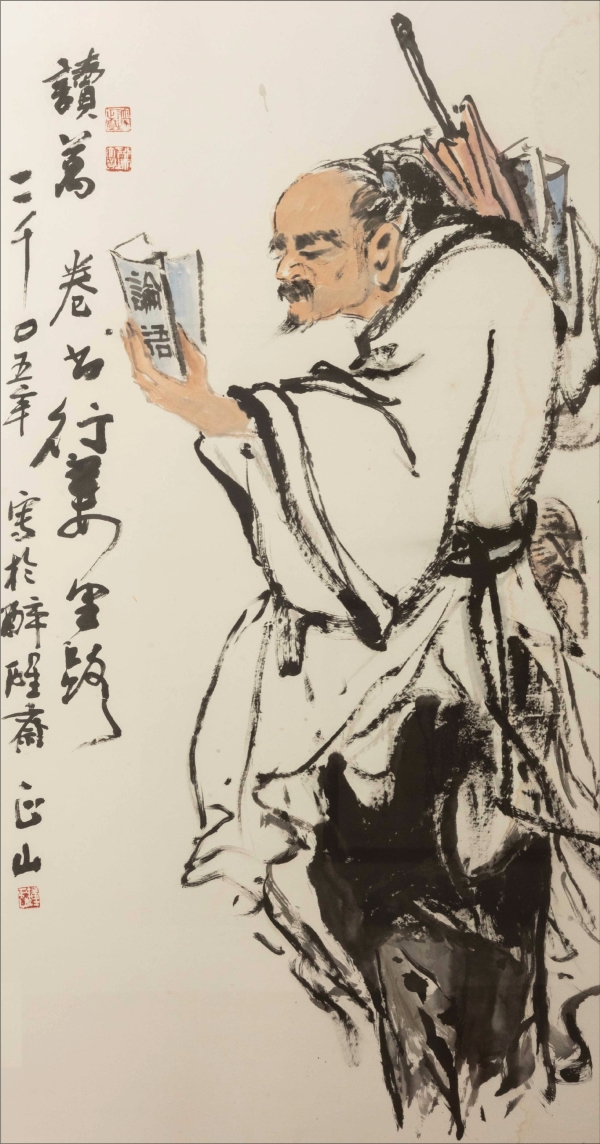 讀萬卷书行萬里路
二千〇五年寫於醉醒齋 正山
論語